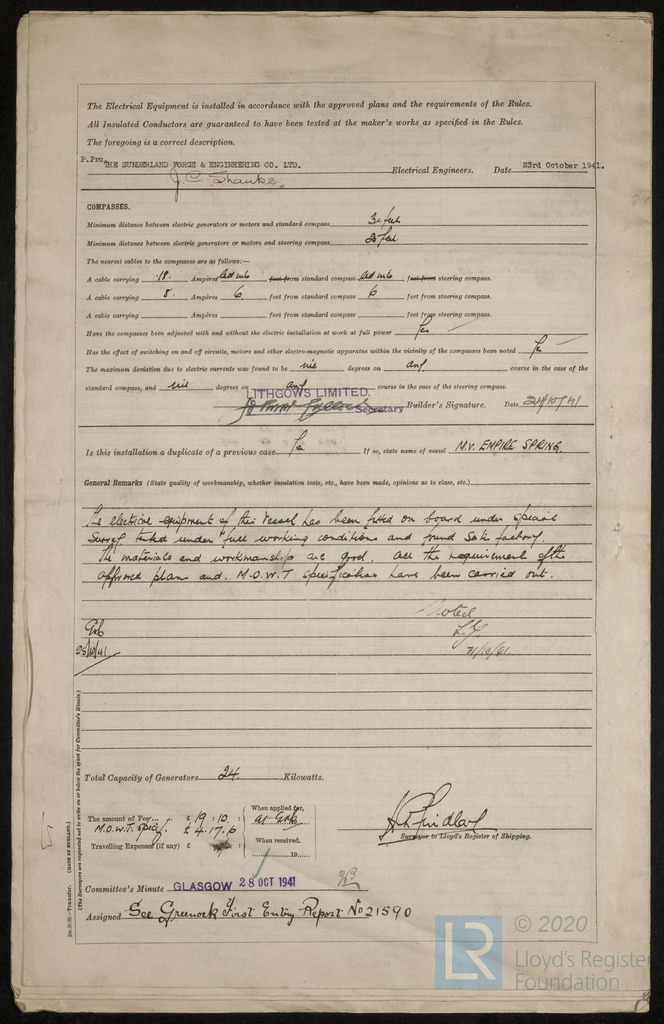 The Electrical Equipment is installed in accordance with the approved plans and the requirements of the Rules.
All Insulated Conductors are guaranteed to have been tested at the maker's works as specified in the Rules.
The foregoing is a correct description.
P.Pro. THE SUNDERLAND FORGE & ENGINEERING CO. LTD. Electrical Engineers. Date 23rd October 1941.
J.C. Shanks
COMPASSES.
Minimum distance between electric generators or motors and standard compass 30 feet
Minimum distance between electric generators or motors and steering compass 25 feet
The nearest cables to the compasses are as follows:—
A cable carrying .18. Ampères led into feet from standard compass led into feet from steering compass.
A cable carrying 8. Ampères 6 feet from standard compass 6 feet from steering compass.
A cable carrying Ampères feet from standard compass feet from steering compass.
Have the compasses been adjusted with and without the electric installation at work at full power Yes
Has the effect of switching on and off circuits, motors and other electro-magnetic apparatus within the vicinity of the compasses been noted Yes
The maximum deviation due to electric currents was found to be nil degrees on any course in the case of the
standard compass, and nil degrees on any course in the case of the steering compass.
LITHGOWS LIMITED,
Secretary Builder's Signature. Date 24/10/41
Is this installation a duplicate of a previous case Yes If so, state name of vessel M.V. EMPIRE SPRING.
General Remarks (State quality of workmanship, whether insulation tests, etc., have been made, opinions as to class, etc.)
The electrical equipment of this vessel has been fitted on board under special
survey tested under full working conditions and found satisfactory.
The materials and workmanship are good. All the requirement of the
approved plan and M.O.W.T specification have been carried out.
Noted
31/10/41.
25/10/41
Total Capacity of Generators 24 Kilowatts.
The amount of Fee £ 19 : 10 : When applied for,
M.O.W.T. specf. £ 4.17.6
Travelling Expenses (if any) £ When received.
19
Surveyor to Lloyd's Register of Shipping.
Committee's Minute GLASGOW 28 OCT 1941
Assigned See Greenock First Entry Report No 21590
(The Surveyors are requested not to write on or below the space for Committee's Minute.)
(MADE IN ENGLAND.)
Transfer.
LR
© 2020
Lloyd's Register
Foundation